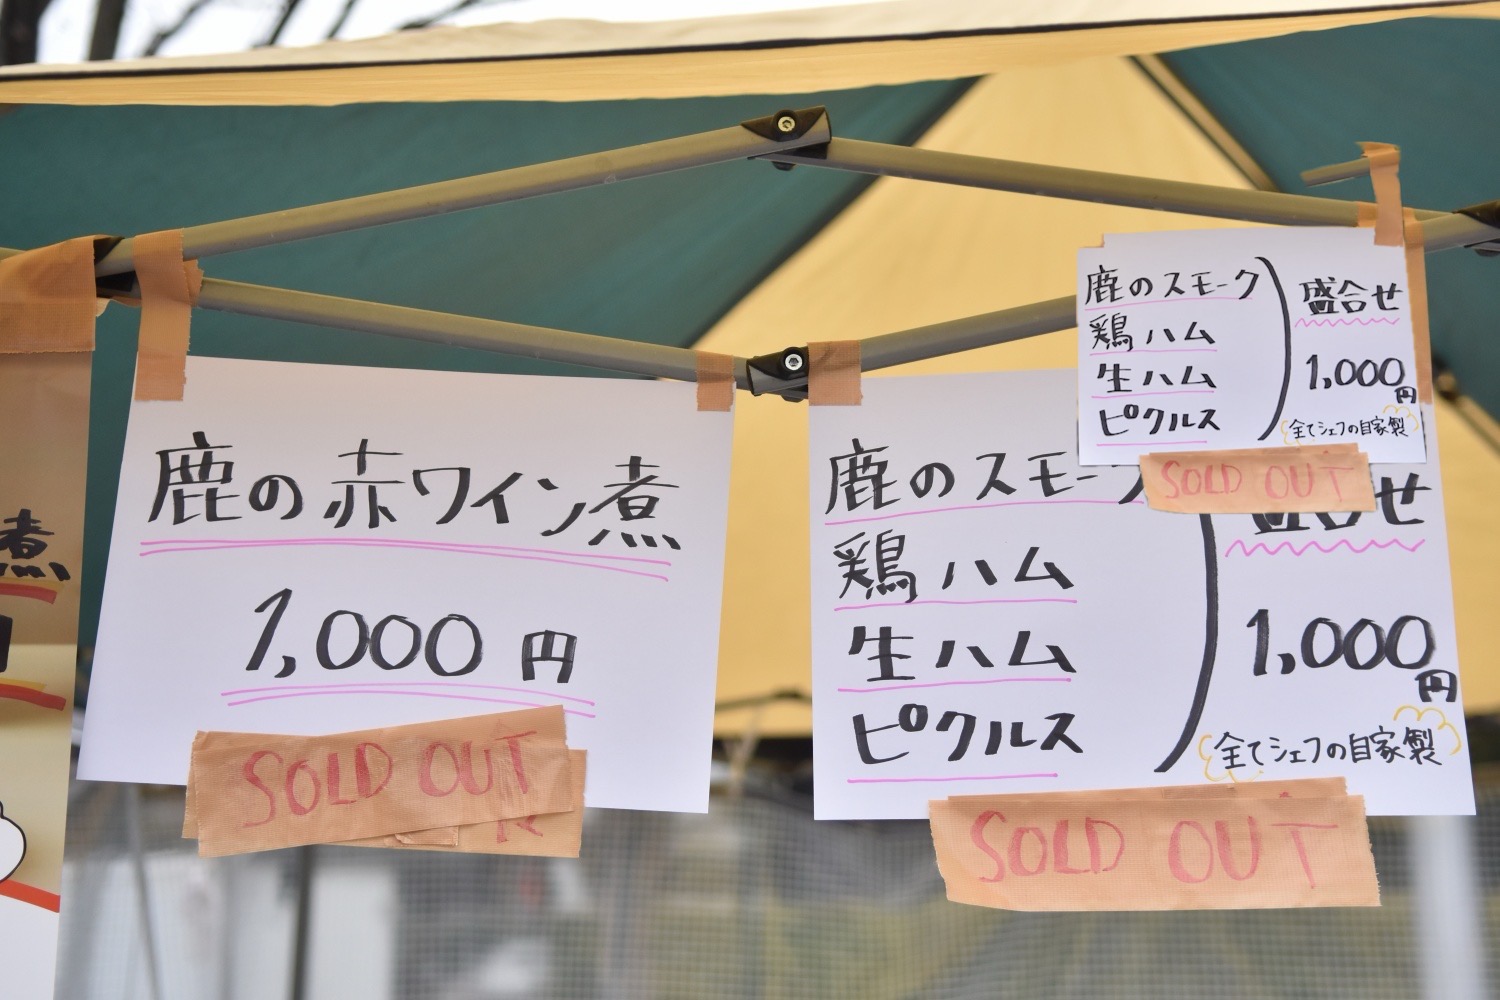 煮
鹿の赤ワイン煮
1,000円
SOLD OUT
鹿のスモーク
鶏ハム
生ハム
ピクルス
盛合せ
1,000円
全てシェフの自家製
SOLD OUT
鹿のスモーク
鶏ハム
生ハム
ピクルス
盛合せ
1,000円
全てシェフの自家製
SOLD OUT